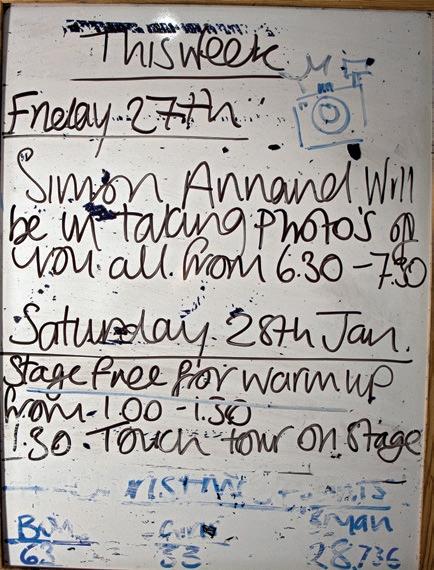 This week
Friday 27th
Simon Annand Will
be in taking photo's of
you all from 6.30 - 7.30
Saturday 28th Jan.
Stage free for warm up
from 1.00 - 1.30
1.30. Touch tour on stage
63 33 28,736